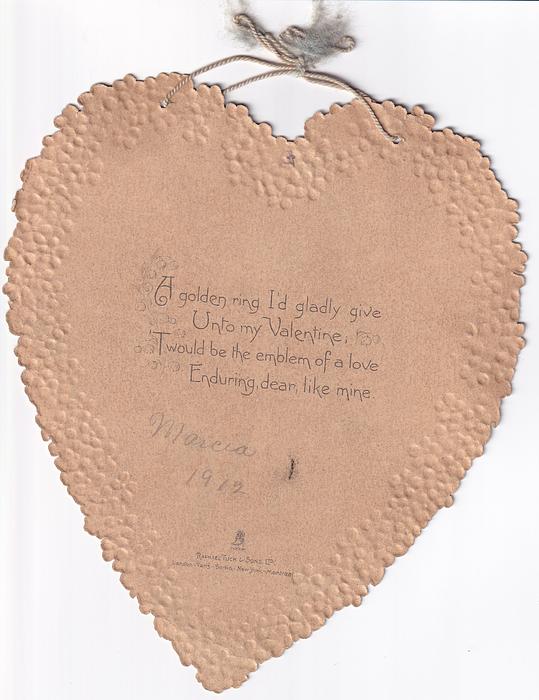 A golden ring I'd gladly give
Unto my Valentine;
'Twould be the emblem of a love
Enduring, dear, like mine.
Marcia
1912
RAPHAEL TUCK & SONS, LTD.
London - Paris - Berlin - New York - Montreal